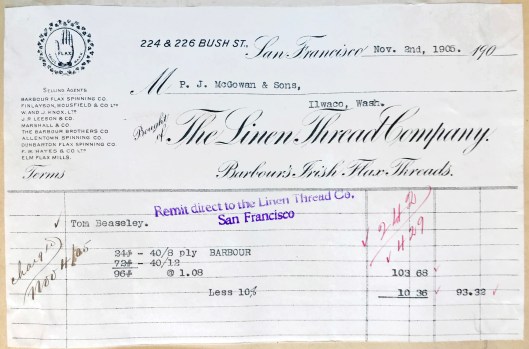 FLAX
224 & 226 BUSH ST., San Francisco Nov. 2nd, 1905. 190
M P. J. McGowan & Sons,
Ilwaco, Wash.
SELLING AGENTS
BARBOUR FLAX SPINNING CO.
FINLAYSON, BOUSFIELD & CO LTD
W. AND J. KNOX, LTD
J. R. LEESON & CO.
MARSHALL & CO.
THE BARBOUR BROTHERS CO
ALLENTOWN SPINNING CO.
DUNBARTON FLAX SPINNING CO.
F. W. HAYES & CO LTD
ELM FLAX MILLS.
Terms
Bought of The Linen Thread Company.
Barbour's Irish Flax Threads.
Remit direct to the Linen Thread Co.
San Francisco
✓ Tom Beaseley.
242
✓ 429
charged
Nov 4/05
24# - 40/8 ply BARBOUR
72# - 40/12
96# @ 1.08 103 68
Less 10% 10 36 93.32